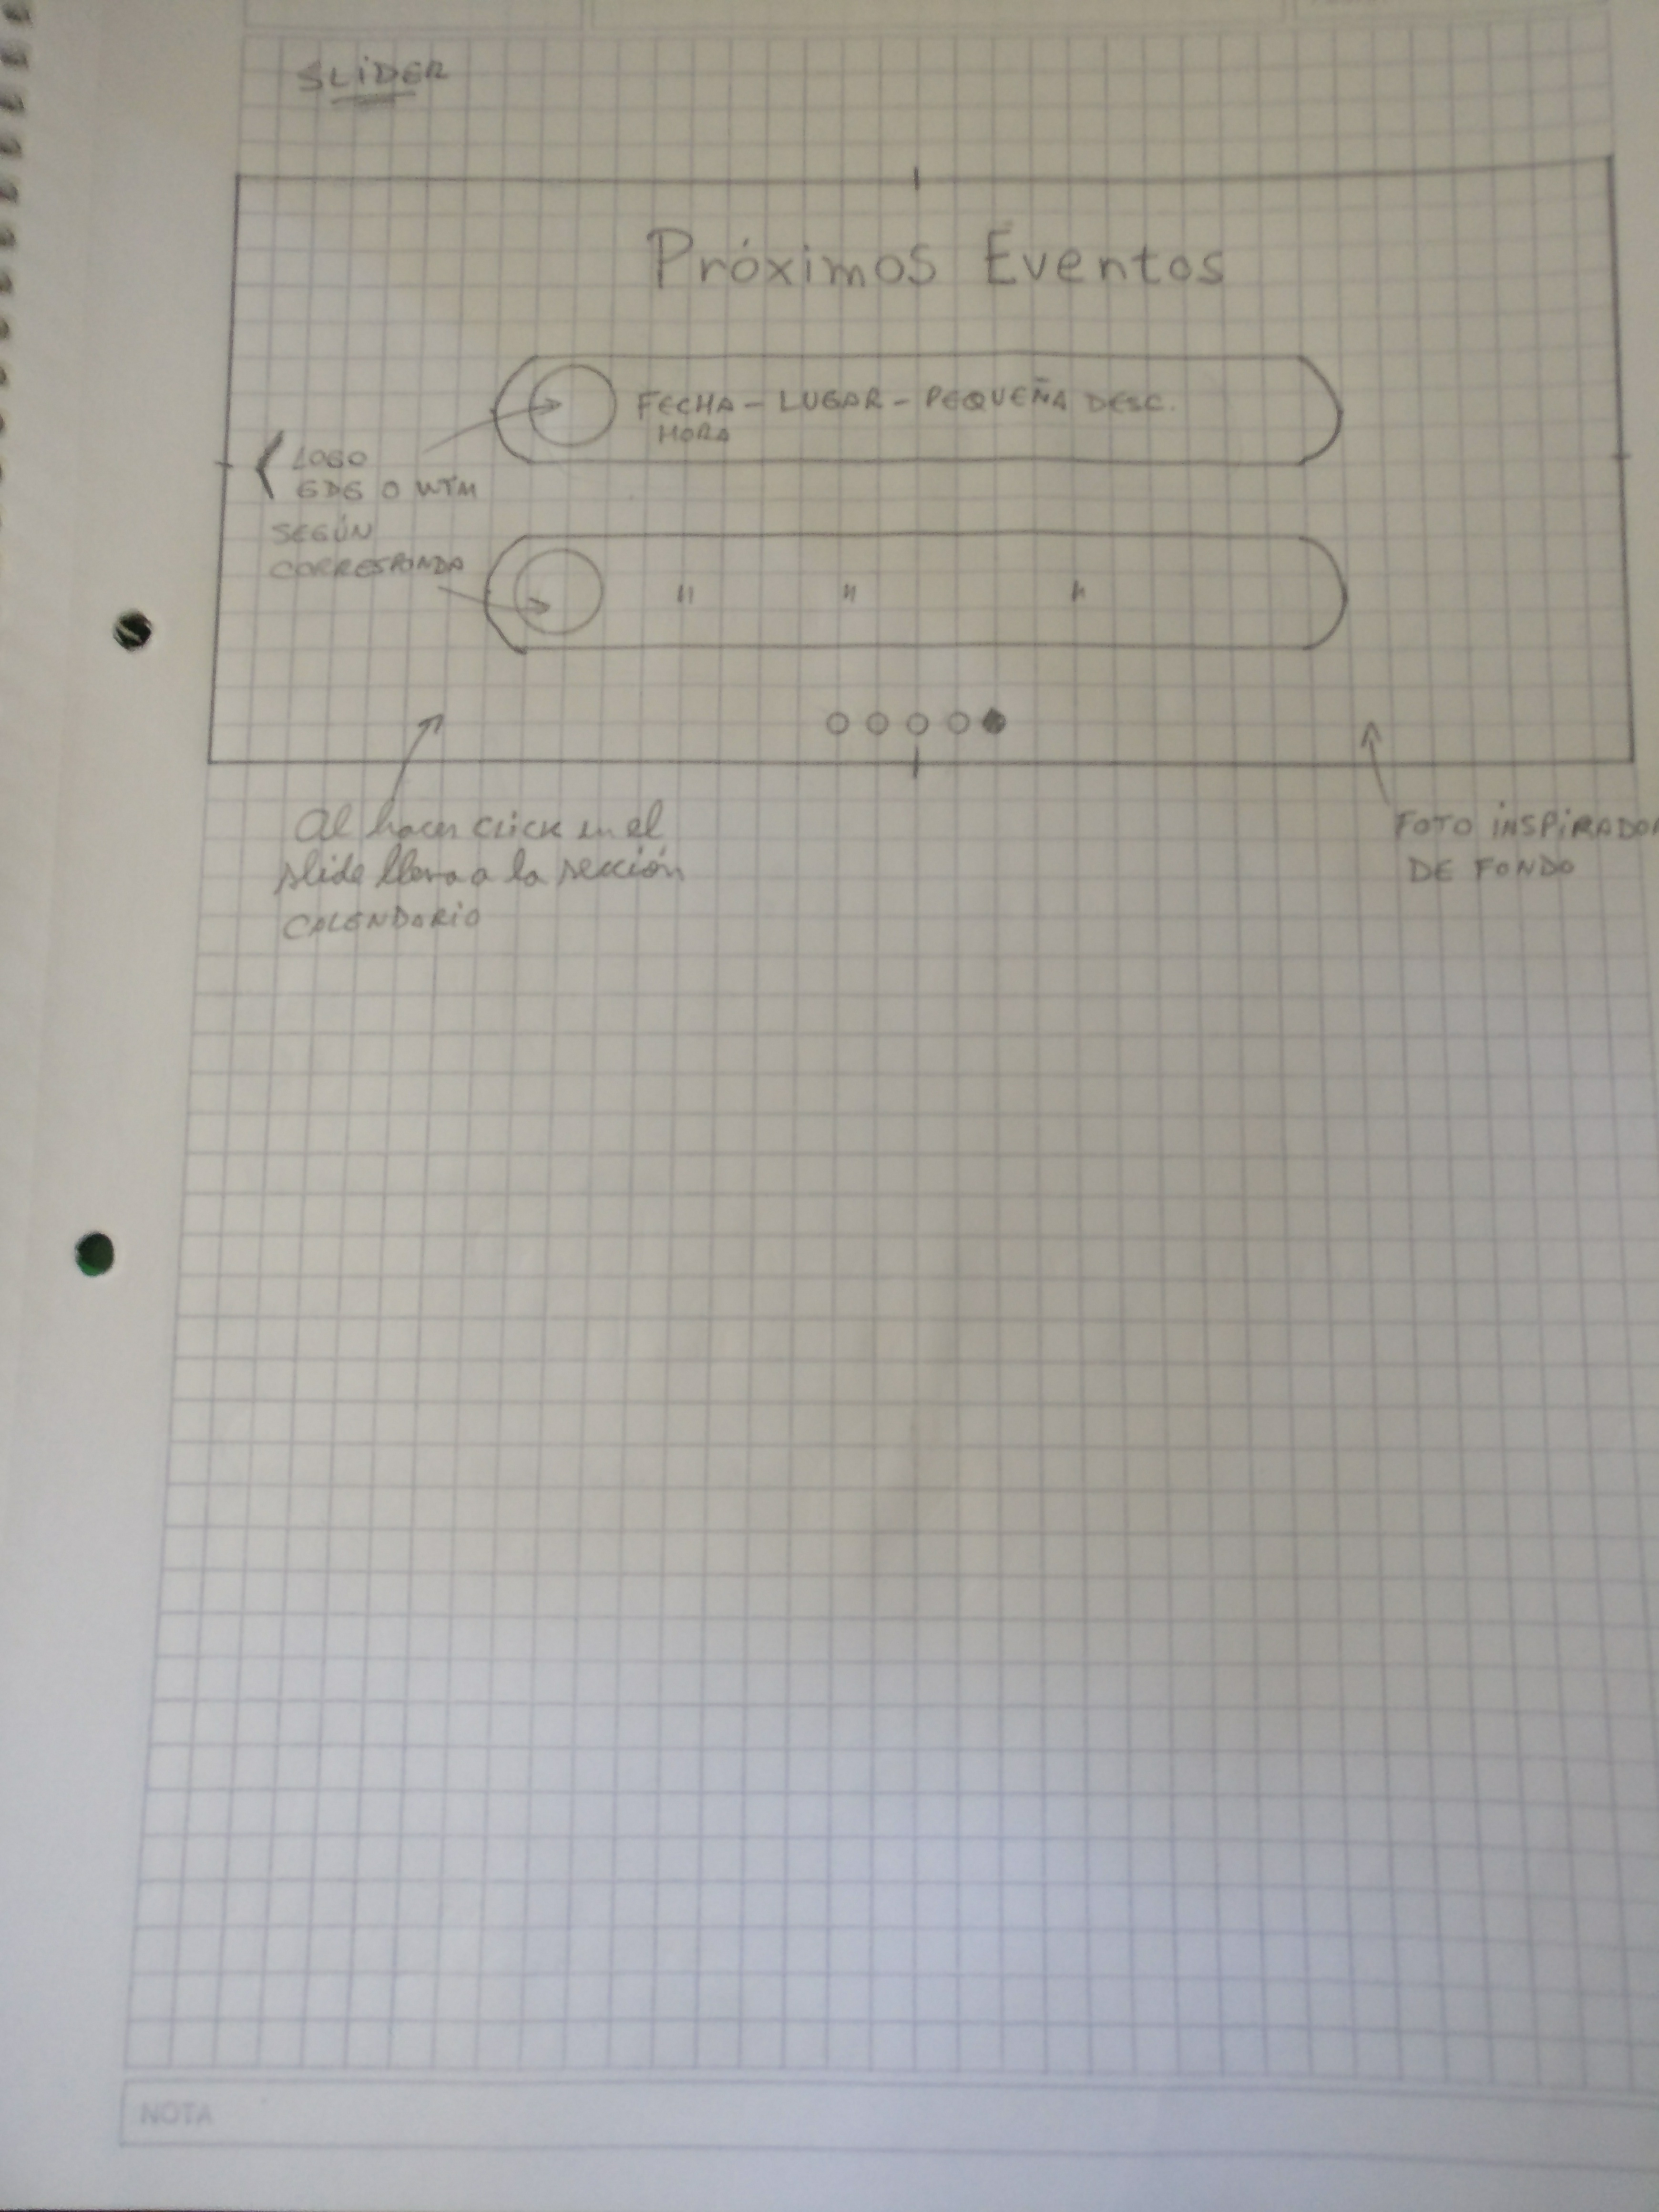 SLIDER
Próximos Eventos
FECHA - LUGAR - PEQUEÑA DESC.
HORA
LOGO
GDG O WTM
SEGÚN
CORRESPONDA
" " "
Al hacer click en el
slide lleva a la sección
CALENDARIO
FOTO INSPIRADOR
DE FONDO
NOTA